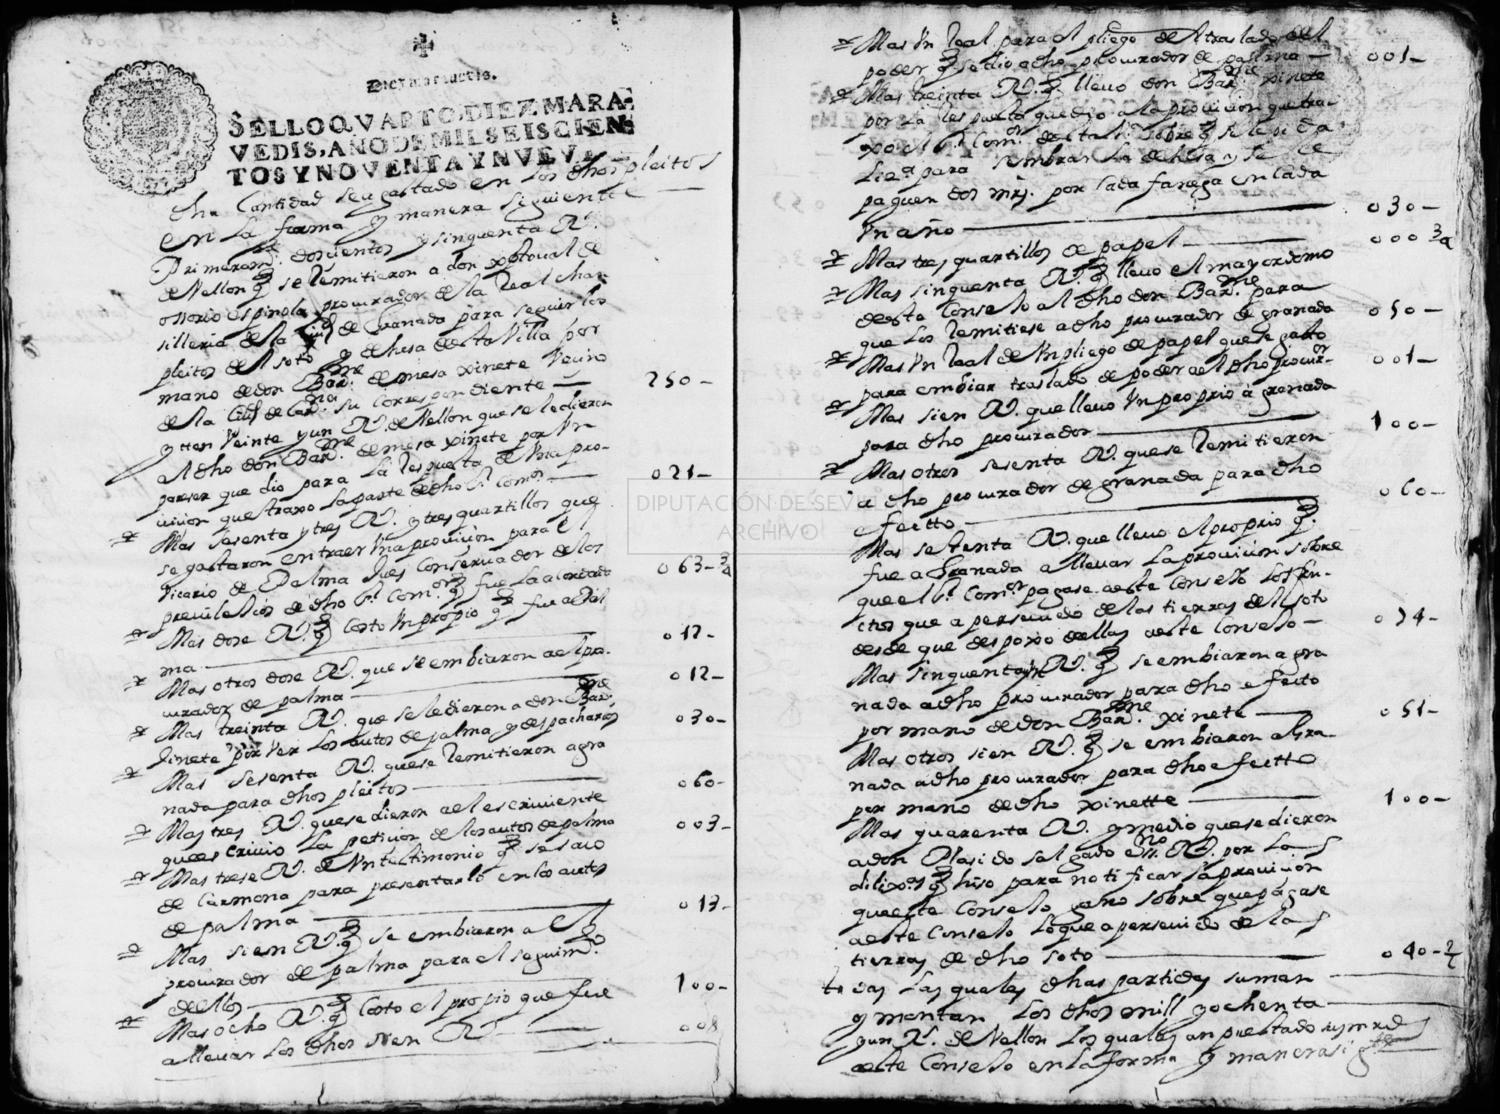 Diez maravedis.
SELLO QVARTO, DIEZ MARA-
VEDIS, AÑO DE MIL SEISCIEN-
TOS Y NOVENTA Y NVEVE
dha Cantidad se a gastado en los dhos pleitos
en la forma y manera siguiente
Primeramte. dosientos y sinquenta Rs.
de Vellon q se Remitieron a don xptoual de
ossorio espinola procurador de la Real chan-
silleria de la Ciud de Granada para seguir los
pleitos del soto y dehesa de esta Villa por
mano de don Barme. de mesa xinete Vecino
de la Ciud de Carmona su correspondiente 250-
yten Veinte y un Rs. de Vellon que se le dieron
al dho don Barme. de mesa xinete por Vn
pareser que dio para la Respuesta de Vna pro-
uision que traxo la parte de dho Sr. Comor. 021-
Mas sesenta y tres Rs. y tres quartillos que
se gastaron en traer Vna prouision para el
Vicario de Palma Jues Conseruador de los
preuilexios de dho Sr. Comor. q fue la aconpañado 063-3/4
Mas dose Rs. q Costo Vn propio q fue a Pal
ma 012-
Mas otros dose Rs. que se embiaron a el pro-
curador de palma 012-
Mas treinta Rs. que se le dieron a don Barme.
Jinete por Ver los autos de palma y despacharlos 030-
Mas sesenta Rs. que se Remitieron a gra
nada para dhos pleitos 060-
Mas tres Rs. que se dieron a el escriuiente
que escriuio la petision de los autos de palma 003-
Mas trese Rs. de Vn testimonio q se saco
de Carmona para presentarlo en los autos
de palma 013-
Mas sien Rs. q se embiaron a el
procurador de palma para el seguimto.
de ellos 100-
Mas ocho Rs. q Costo el propio que fue
a lleuar los dhos sien Rs 008
Mas Vn Real para el pliego del traslado del
poder q se dio a dho procurador de palma 001-
Mas treinta Rs. q lleuo don Barme. xinete
por la Respuesta que dio a la prouision que tra-
xo el Sr. Comor. de esta Va. sobre q se le pida
Liea. para sembrar la dehesa y se le
paguen dos mrs. por cada fanega en cada
Vn año 030-
Mas tres quartillos de papel 000 3/4
Mas sinquenta Rs. q lleuo el mayordomo
de este Consejo al dho don Barme. para
que los Remitiese a dho procurador de granada 050-
Mas Vn Real de Vn pliego de papel que se gasto
para embiar traslado de poder a el dho procuror. 001-
Mas sien Rs. que lleuo Vn proprio a granada
para dho procurador 100-
Mas otros sesenta Rs. que se Remitieron
a dho procurador de granada para dho
efectto 060-
Mas setenta Rs. que lleuo el proprio q.
fue a Granada a lleuar la prouision sobre
que el Sr. Comor. pagase a este Consejo los fru-
ctos que a perseuido de las tierras del soto
desde que despoxo de ellas a este Consejo 074-
Mas sinquenta y un Rs. q se embiaron a gra
nada a dho procurador para dho efecto
por mano de don Barme. xinete 051-
Mas otros sien Rs. q se embiaron a Gra-
nada a dho procurador para dho efectto
por mano de dho xinette 100-
Mas quarenta Rs. y medio que se dieron
a don Plasido salgado Esno. Rl. por las
dilixas. q hiso para notificar la prouision
que este Consejo gano sobre que pagase
a este Consejo lo que a perseuido de las
tierras de dho soto 040-2/4
todas las quales dhas partidas suman
y montan los dhos mill y ochenta
y un Rs. de Vellon los quales an prestado
a este Consejo en la forma y manera sigte
DIPUTACIÓN DE SEVILLA
ARCHIVO